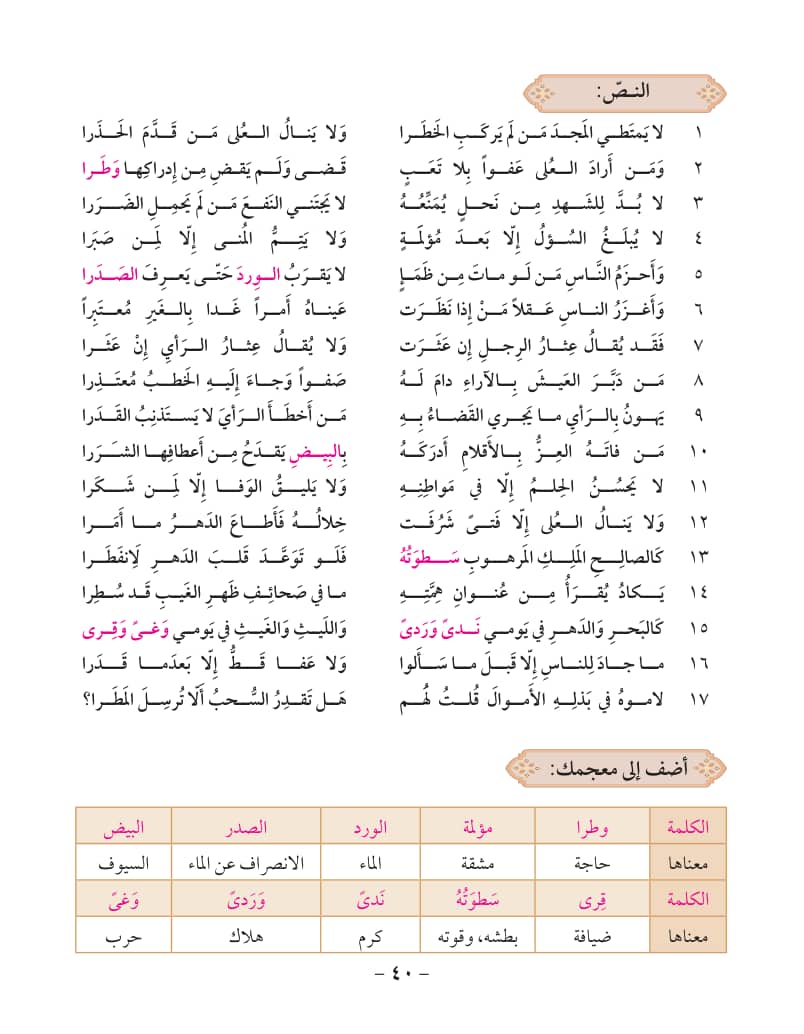 النـصّ:
١ لا يَمتَطي المَجدَ مَن لَم يَركَبِ الخَطَرا وَلا يَنالُ العُلى مَن قَدَّمَ الحَذَرا
٢ وَمَن أَرادَ العُلى عَفواً بِلا تَعَبٍ قَضى وَلَم يَقضِ مِن إِدراكِها وَطَرا
٣ لا بُدَّ لِلشَهدِ مِن نَحلٍ يُمَنِّعُهُ لا يَجتَني النَفعَ مَن لَم يَحمِلِ الضَرَرا
٤ لا يُبلَغُ السُؤلُ إِلّا بَعدَ مُؤلَمَةٍ وَلا يَتِمُّ المُنى إِلّا لِمَن صَبَرا
٥ وَأَحزَمُ النَّاسِ مَن لَو ماتَ مِن ظَمَإٍ لا يَقرَبُ الوِردَ حَتّى يَعرِفَ الصَدَرا
٦ وَأَغزَرُ الناسِ عَقلاً مَنْ إِذا نَظَرَت عَيناهُ أَمراً غَدا بِالغَيرِ مُعتَبِراً
٧ فَقَد يُقالُ عِثارُ الرِجلِ إِن عَثَرَت وَلا يُقالُ عِثارُ الرَأيِ إِنْ عَثَرا
٨ مَن دَبَّرَ العَيشَ بِالآراءِ دامَ لَهُ صَفواً وَجاءَ إِلَيهِ الخَطبُ مُعتَذِرا
٩ يَهونُ بِالرَأيِ ما يَجري القَضاءُ بِهِ مَن أَخطَأَ الرَأيَ لا يَستَذنِبُ القَدَرا
١٠ مَن فاتَهُ العِزُّ بِالأَقلامِ أَدرَكَهُ بِالبِيضِ يَقدَحُ مِن أَعطافِها الشَرَرا
١١ لا يَحسُنُ الحِلمُ إِلّا في مَواطِنِهِ وَلا يَليقُ الوَفا إِلّا لِمَن شَكَرا
١٢ وَلا يَنالُ العُلى إِلّا فَتىً شَرُفَت خِلالُهُ فَأَطاعَ الدَهرُ ما أَمَرا
١٣ كَالصالِحِ المَلِكِ المَرهوبِ سَطوَتُهُ فَلَو تَوَعَّدَ قَلبَ الدَهرِ لَانفَطَرا
١٤ يَكادُ يُقرَأُ مِن عُنوانِ هِمَّتِهِ ما في صَحائِفِ ظَهرِ الغَيبِ قَد سُطِرا
١٥ كَالبَحرِ وَالدَهرِ في يَومي نَدىً وَرَدىً وَاللَيثِ وَالغَيثِ في يَومي وَغىً وَقِرى
١٦ ما جادَ لِلناسِ إِلّا قَبلَ ما سَأَلوا وَلا عَفا قَطُّ إِلّا بَعدَما قَدَرا
١٧ لاموهُ في بَذلِهِ الأَموالَ قُلتُ لَهُم هَل تَقدِرُ السُحبُ أَلّا تُرسِلَ المَطَرا؟
أضف إلى معجمك:
الكلمة وطرا مؤلمة الورد الصدر البيض
معناها حاجة مشقة الماء الانصراف عن الماء السيوف
الكلمة قِرى سَطوَتُهُ نَدىً وَرَدىً وَغىً
معناها ضيافة بطشه، وقوته كرم هلاك حرب
– ٤٠ –